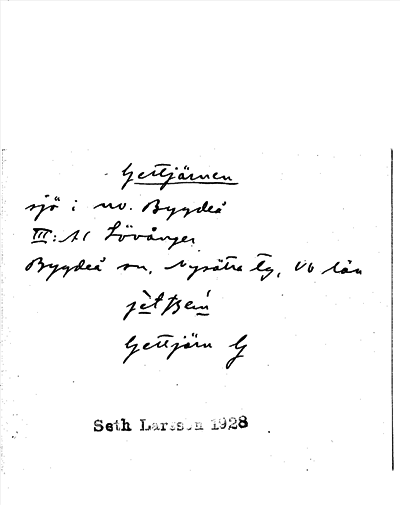 Gettjärnen
sjö i nv. Bygdeå
III: Lövånger
Bygdeå sn, Nysätra tg, Vb län
Gettjärn G
Seth Larsson 1928